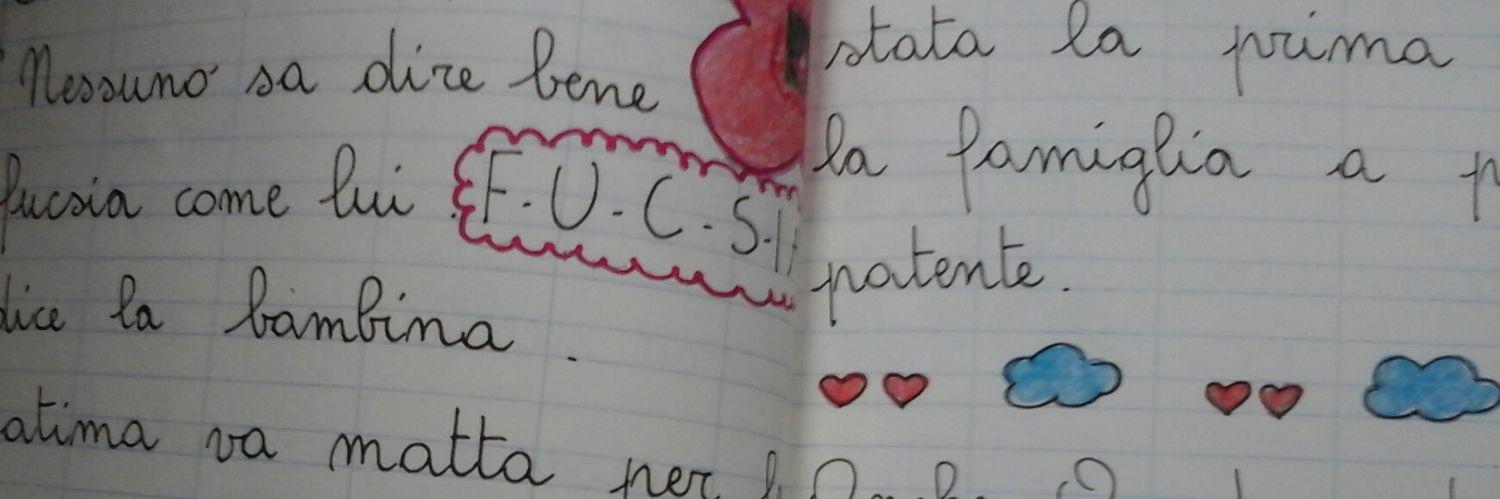 Nessuno sa dire bene
fucsia come lui F.U.C.S.I
dice la bambina.
atima va matta per
stata la prima
la famiglia a p
patente.